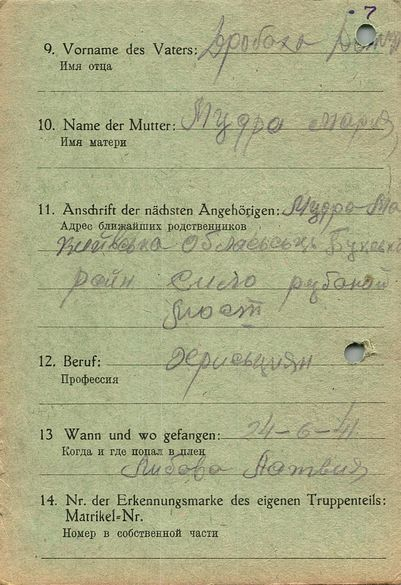 7
9. Vorname des Vaters: Дробаха
Имя отца
10. Name der Mutter: Мудра Мария
Имя матери
11. Anschrift der nächsten Angehörigen: Мудра Ма
Адрес ближайших родственников
Київська
райн село рубаной
мост
12. Beruf:
Профессия
13 Wann und wo gefangen: 24-6-41
Когда и где попал в плен
Либава Латвия
14. Nr. der Erkennungsmarke des eigenen Truppenteils:
Matrikel-Nr.
Номер в собственной части